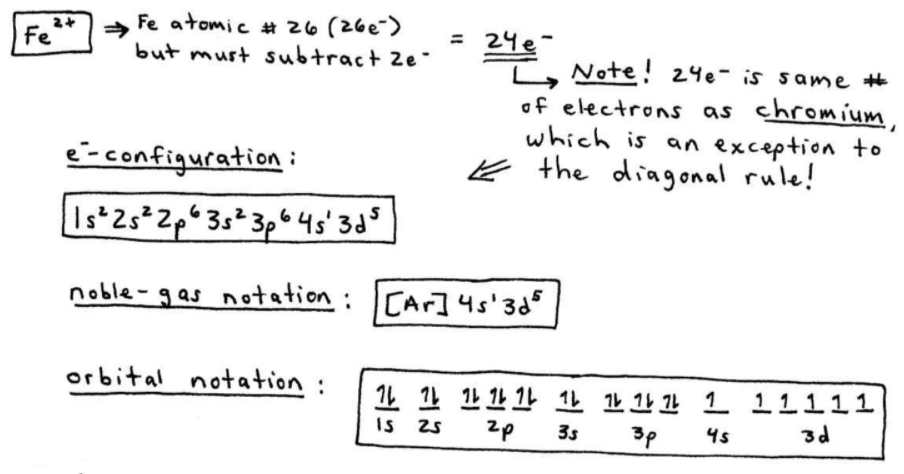 Fe²⁺ ⇒ Fe atomic # 26 (26e⁻)
but must subtract 2e⁻ = 24e⁻
Note! 24e⁻ is same #
of electrons as chromium,
which is an exception to
the diagonal rule!
e⁻-configuration:
1s²2s²2p⁶3s²3p⁶4s¹3d⁵
noble-gas notation: [Ar] 4s¹3d⁵
orbital notation: ⥮ ⥮ ⥮ ⥮ ⥮ ⥮ ⥮ ⥮ ⥮ 1 1 1 1 1 1
1s 2s 2p 3s 3p 4s 3d